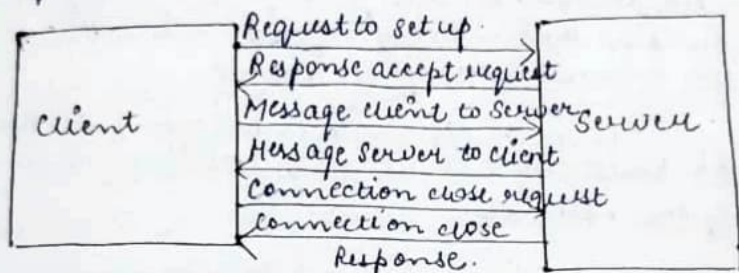 Request to set up.
Response accept request
Message client to Server
Client
Server
Message Server to client
Connection close request
Connection close
Response.